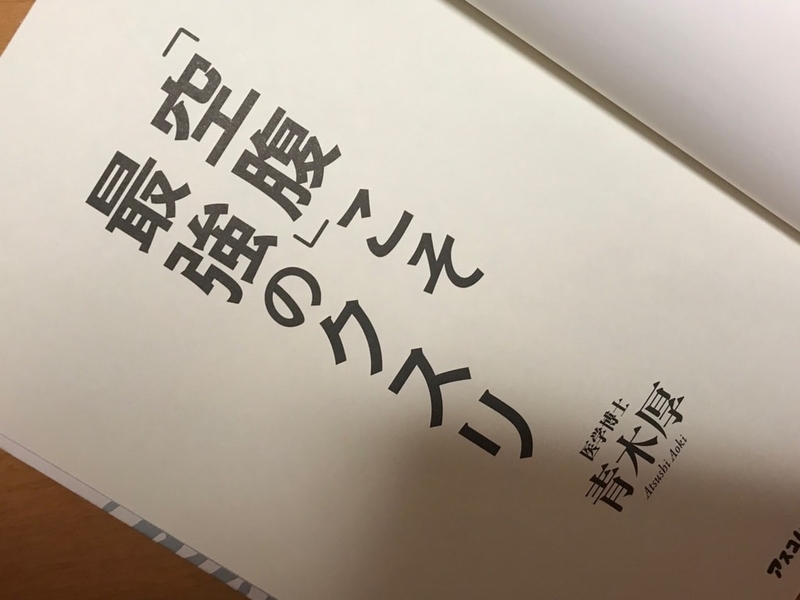 「空腹」こそ
最強のクスリ
医学博士
青木厚
Atsushi Aoki
アスコ